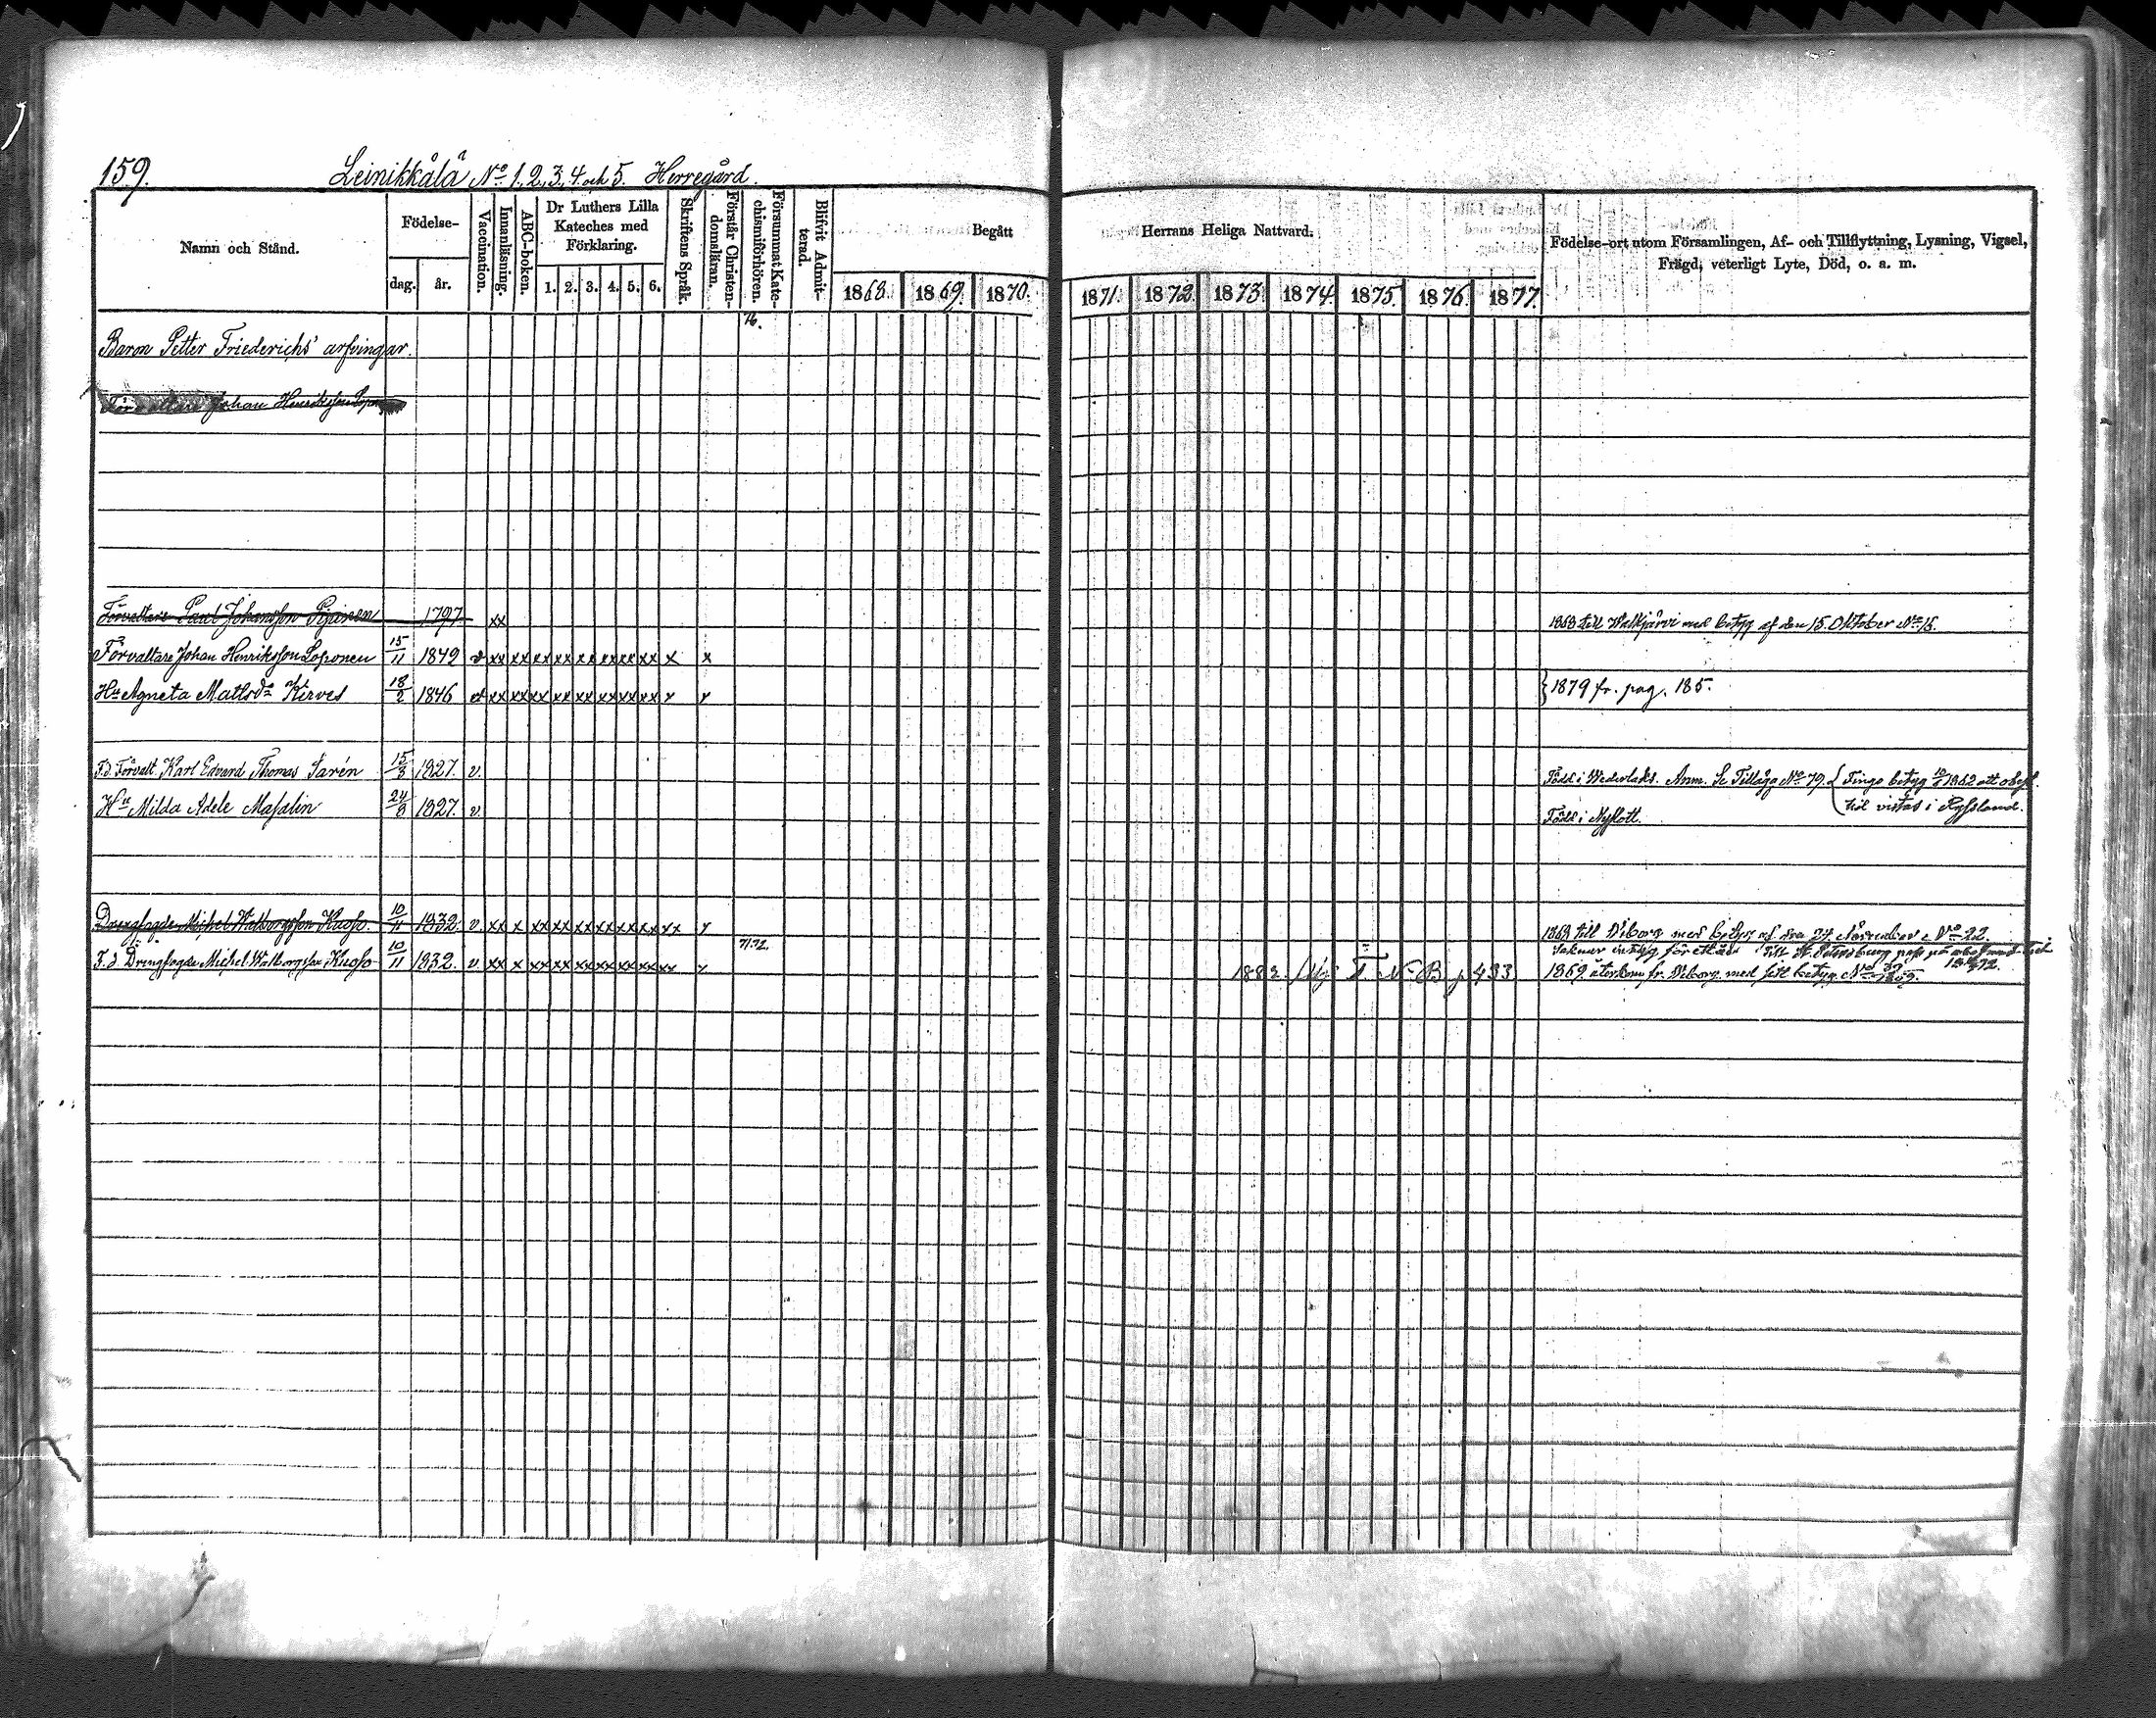 159.
Leinikkålå No 1, 2, 3, 4 och 5. Herregård.
Namn och Stånd.
Födelse-
dag.
år.
Vaccination.
Innanläsning.
ABC-boken.
Dr Luthers Lilla
Kateches med
Förklaring.
1. 2. 3. 4. 5. 6.
Skriftens Språk.
Förstår Christen-
domsläran.
Försummat Kate-
chismiförhören.
Blifvit Admit-
terad.
Begått
Herrans Heliga Nattvard.
1868. 1869. 1870.
1871. 1872. 1873. 1874. 1875. 1876. 1877.
Födelse-ort utom Församlingen, Af- och Tillflyttning, Lysning, Vigsel,
Frägd, veterligt Lyte, Död, o. a. m.
76.
Baron Petter Friederichs' arfvingar.
Förvaltare Johan Henriksson
Förvaltare Paul Johansson 1797 xx 1868 till Walkjärvi med betyg af den 15 Oktober No 15.
Förvaltare Johan Henriksson Loponen 15/11 1842 v xx xx xx xx xx xx xx xx x x
Hu Agneta Matlsdr Kirves 18/2 1846 v xx xx xx xx xx xx xx xx x x } 1879 fr. pag. 185.
F.d. Förvalt. Karl Edvard Thomas Sarén 15/8 1827. v. Född i Wederlaks. Anm. Se Tillägg No 79. { Tingo betyg 1862 att
Hu Milda Adele Masalin 24/8 1827. v. Född i Nyslott. vistas i Ryssland.
Drengfogde Michel Walborgsson Kuoso 10/11 1832. v. xx x xx xx xx xx xx xx xx x 1868 till Viborg med betyg af den 27 November No 22.
71.72.
F.d Drengfogde Michel Walborgsson Kuoso 10/11 1832. v. xx x xx xx xx xx xx xx xx x 1883. T. N. B. p. 433 1869 återkom fr. Viborg med sitt betyg No